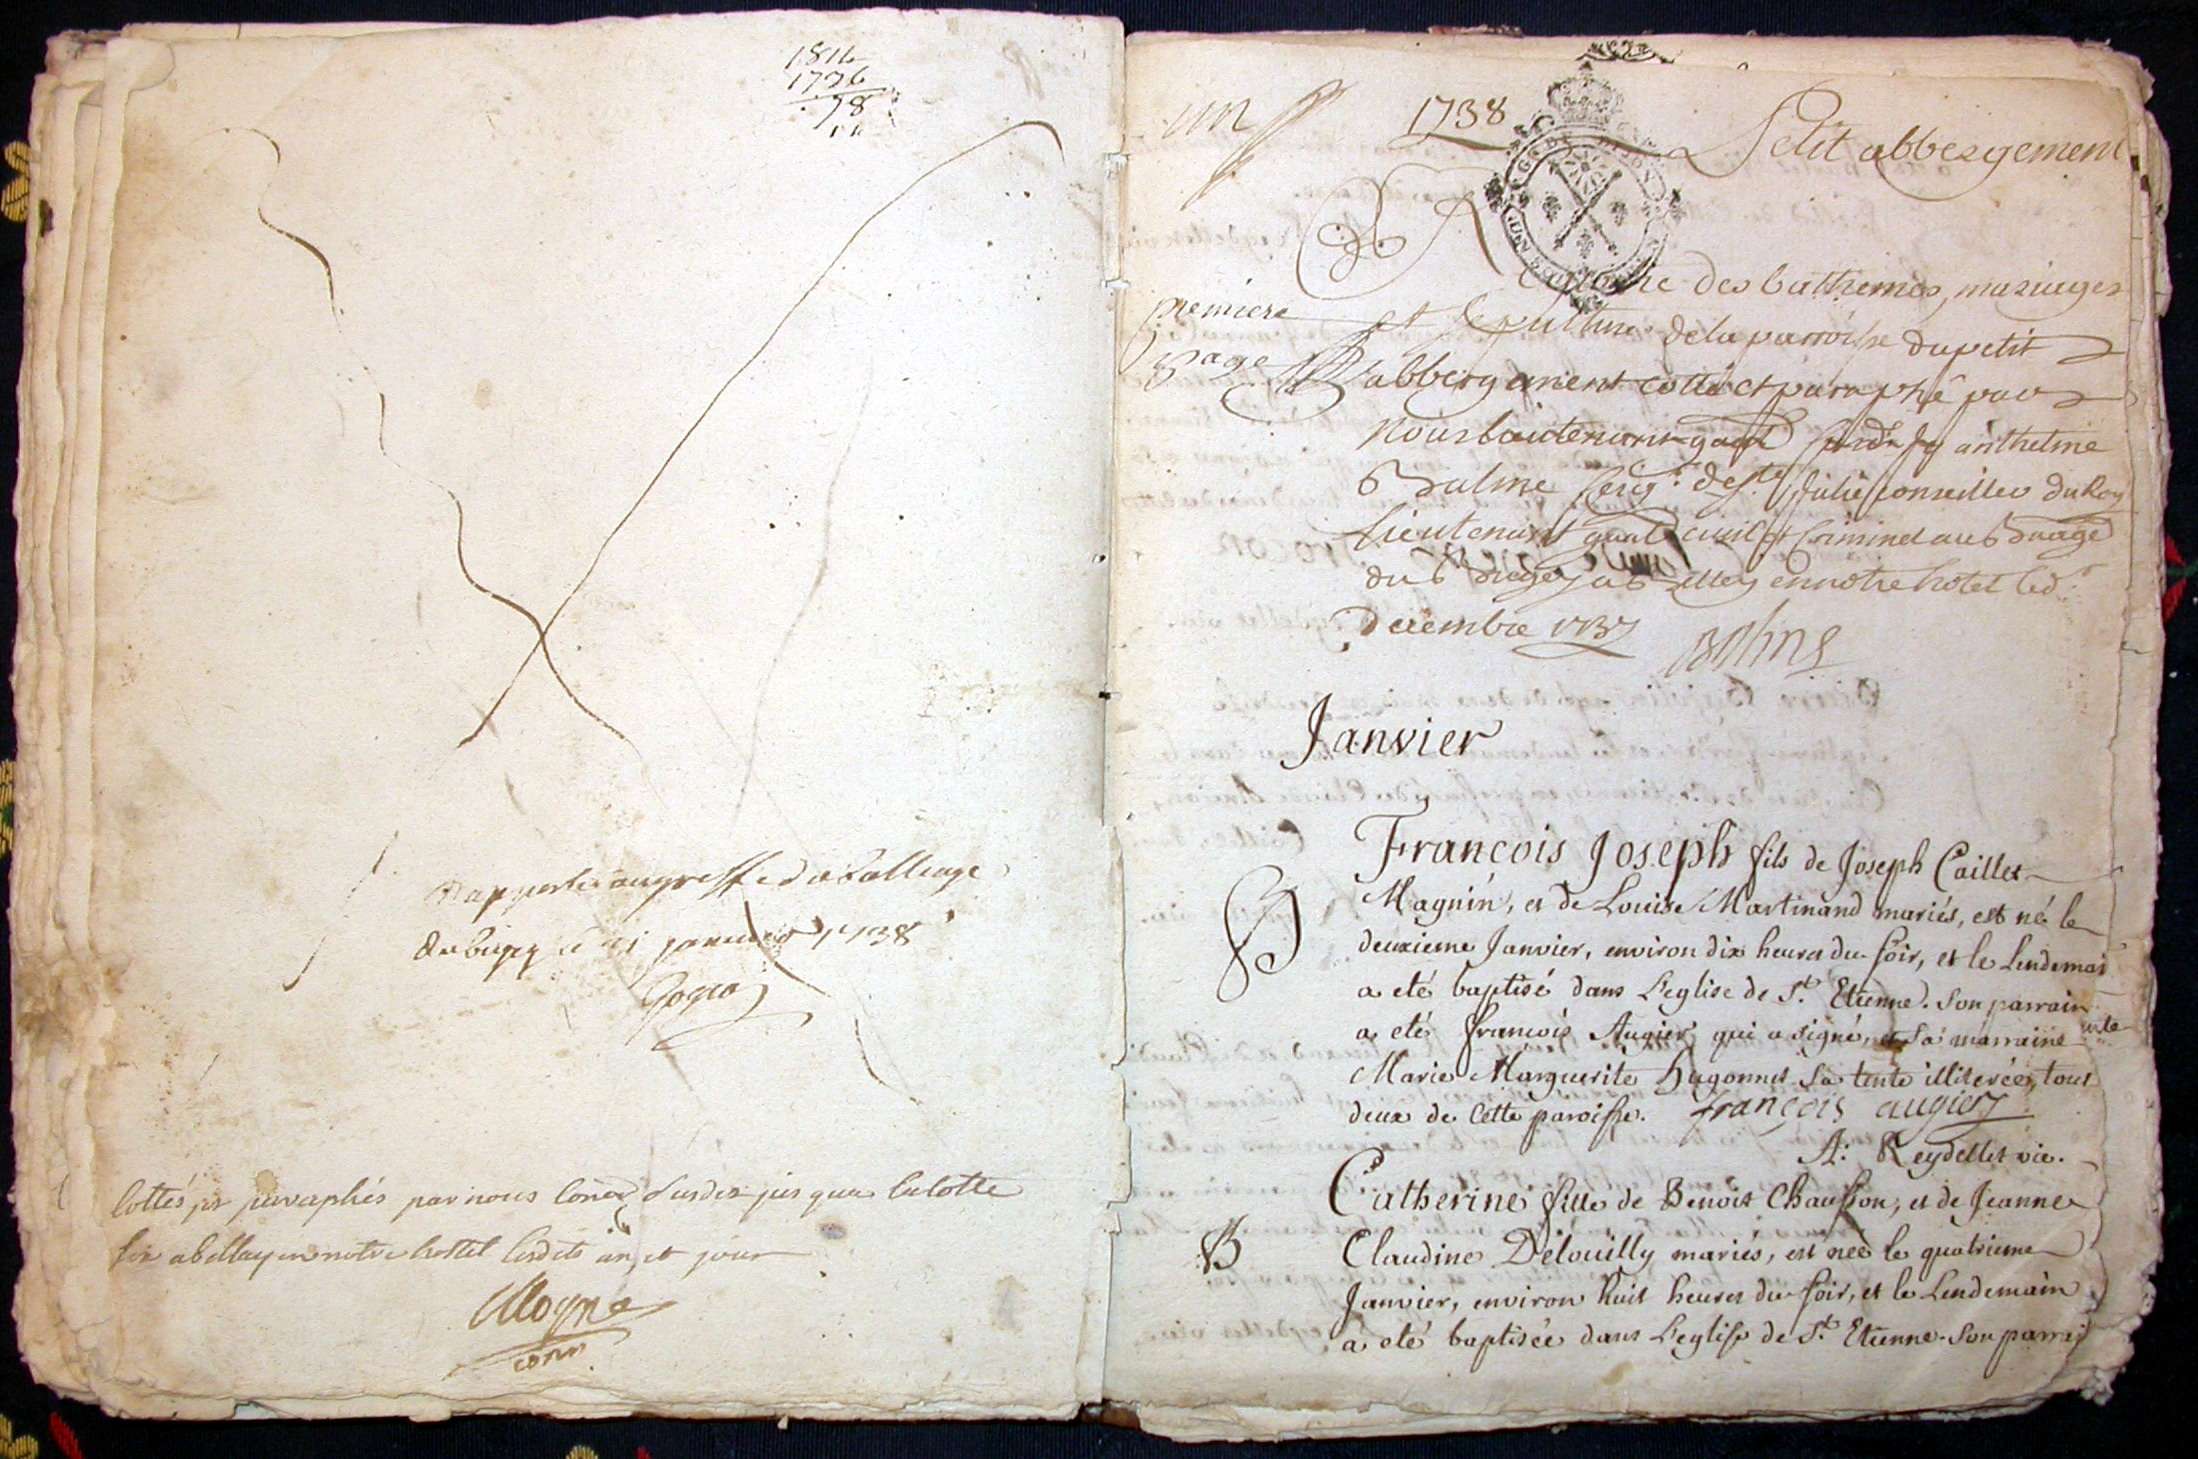 1816
1736
78
Rapporté au greffe du Balliage
du bugey le 21 janvier 1738
Cottés et paraphés par nous Consr susdit jusqua la cotte
six a bellay en notre hottel lesdits an et jour
un
1738
Petit abbergement
Registre des batthemes, mariages
premiere
page
et sepulture de la parroisse du petit
abbergement cotté et paraphé par
Nous Lieutenant gnal Anthelme
Balme seigr de ste Julie conseiller du Roy
Lieutenant gnal civil et criminel au Baage
du Bugey a Belley en notre hotel le
Decembre 1737
Balme
Janvier
B
François Joseph fils de Joseph Caillet
Magnin, et de Louise Martinand mariés, est né le
deuxieme Janvier, environ dix heures du soir, et le Lendemai
a eté baptisé dans L'eglise de St. Etienne. Son parrain
a eté francois Augier qui a signé, et sa marraine
Marie Marguerite Hugonnet sa tente illiterée, tous
deux de cette paroisse. françois augier
A. Reydellet vic.
B
Catherine fille de Benoit Chausson, et de Jeanne
Claudine Delouilly mariés, est née le quatrieme
Janvier, environ huit heures du soir, et le Lendemain
a eté baptisée dans L'eglise de St. Etienne. Son parrai